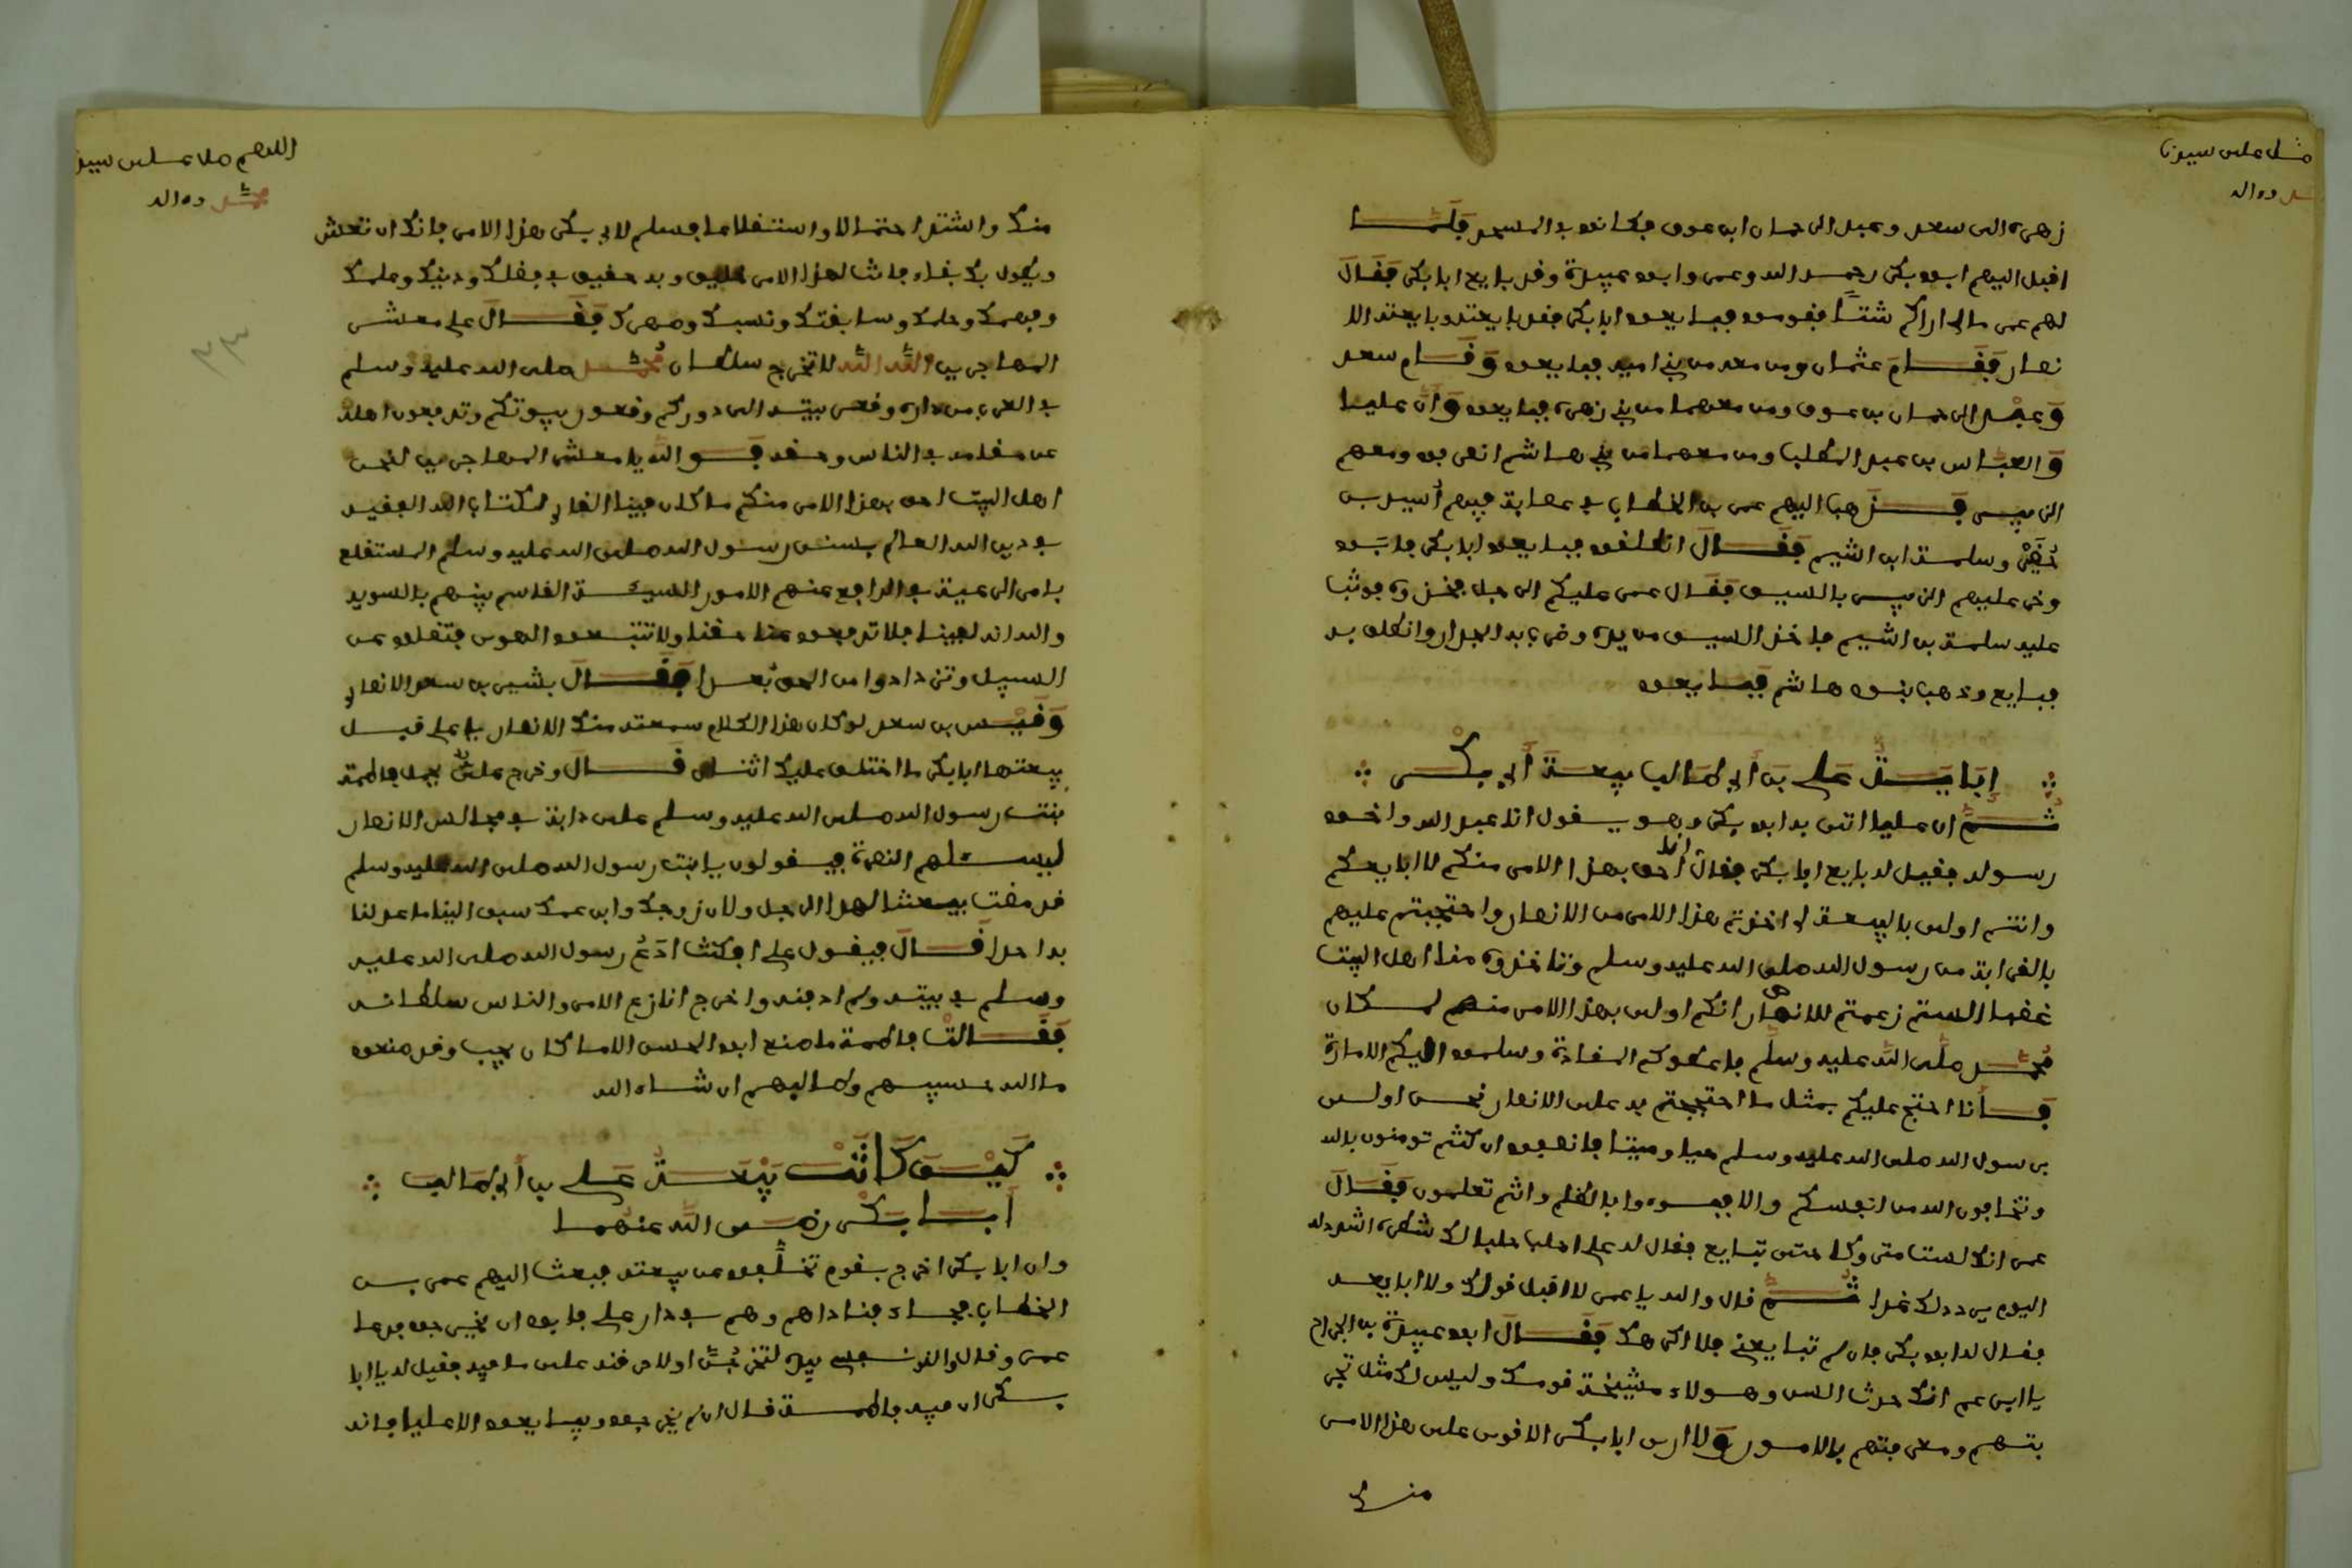 صل على سيدنا
محمد وءاله
زهرة الى سعد وعبد الرحمان ابن عوف فكانوا في المسجد فلما
اقبل اليهم ابو بكر رحمه الله وعمر وابو عبيدة وقد بايع ابا بكر فقال
لهم عمر مالي اراكم شتا فقوموا فبايعوا ابا بكر فقد بايعته وبايعته الا
نصار فقام عثمان ومن معه من بني امية فبايعوه وقام سعد
وعبد الرحمان بن عوف ومن معهما من بني زهرة فبايعوه وان عليا
والعباس بن عبد المطلب ومن معهما من بني هاشم انصرفوا ومعهم
الزبير فذهب اليهم عمر بن الخطاب في عصابة فيهم أسيد بن
حُضَيْر وسلمة ابن اشيم فقال انطلقوا فبايعوا ابا بكر فابوا
وخرج عليهم الزبير بالسيف فقال عمر عليكم الرجل فخذوه فوثب
عليه سلمة بن اشيم فاخذ السيف من يده وضرب به الجدار وانطلق به
فبايع وذهب بنوا هاشم فبايعوا
إباية علي بن أبي طالب بيعة أبي بكر
ثم ان عليا اتى به ابو بكر وهو يقول انا عبد الله واخوا
رسوله فقيل له بايع ابا بكر فقال انا احق بهذا الامر منكم لا ابايعكم
وانتم اولى بالبيعة لي اخذتم هذا الامر من الانصار واحتججتم عليهم
بالقرابة من رسول الله صلى الله عليه وسلم وتاخذوه منا اهل البيت
غصبا الستم زعمتم للانصار انكم اولى بهذا الامر منهم لمكان
محمد صلى الله عليه وسلم فاعطوكم المقادة وسلموا اليكم الامارة
فأنا احتج عليكم بمثل ما احتججتم به على الانصار نحن اولى
برسول الله صلى الله عليه وسلم حيا وميتا فانصفوا ان كنتم تومنون بالله
وتخافون الله من انفسكم والا فبوءوا بالظلم وانتم تعلمون فقال
عمر انك لست متروكا حتى تبايع فقال له علي احلب حلبا لك شطره اشدد له
اليوم يردده لك غدا ثم قال والله يا عمر لا اقبل قولك ولا ابايعه
فقال له ابو بكر فان لم تبايعني فلا اكرهك فقال ابو عبيدة بن الجراح
يا ابن عم انك حدث السن وهولاء مشيخة قومك وليس لك مثل تجر
بتهم ومعرفتهم بالامور ولا ارى ابا بكر الا اقوى على هذا الامر
منك
اللهم صل على سيدنا
محمد وءاله
منك واشتد احتمالا واستضلاعا فسلم لابي بكر هذا الامر فانك ان تعش
ويطول بك بقاء فانت لهذا الامر خليق وبه حقيق في فضلك ودينك وعلمك
وفهمك وحلمك وسابقتك ونسبك وصهرك فقال علي معشر
المهاجرين الله الله لا تخرجوا سلطان محمد صلى الله عليه وسلم
في العرب من داره وقعر بيته الى دوركم وقعور بيوتكم وتدفعون اهله
عن مقامه في الناس وحقه فوالله يا معشر المهاجرين لنحن
اهل البيت احق بهذا الامر منكم ما كان فينا القاري لكتاب الله الفقيه
في دين الله العالم بسنن رسول الله صلى الله عليه وسلم المستضلع
بامر الرعية الدافع عنهم الامور السيئة القاسم بينهم بالسوية
والله انه لفينا فلا تدفعوا عنا حقنا ولا تتبعوا الهوى فتضلوا عن
السبيل وتزدادوا من الحق بُعدا فقال بشير بن سعد الانصاري
وقيس بن سعد لو كان هذا الكلام سمعته منك الانصار يا علي قبل
بيعتها ابا بكر ما اختلف عليك اثنان قال وخرج علي يحمل فاطمة
بنت رسول الله صلى الله عليه وسلم على دابة في مجالس الانصار
ليسئلهم النصرة فيقولون يا ابنت رسول الله صلى الله عليه وسلم
قد مضت بيعتنا لهذا الرجل ولو ان زوجك وابن عمك سبق الينا ما عدلنا
به احدا قال فيقول علي افكنت ادَعُ رسول الله صلى الله عليه
وسلم في بيته ولم ادفنه واخرج انازع الامر والناس سلطانه
فقالت فاطمة ما صنع ابو الحسن الا ما كان يجب وقد صنعوا
ما الله حسيبهم وطالبهم ان شاء الله
كيف كانت بيعة علي بن أبي طالب
أبا بكر رضي الله عنهما
وان ابا بكر اخرج بقوم تخلفوا عن بيعته فبعث اليهم عمر بن
الخطاب فجاء فناداهم وهم في دار علي فابوا ان يخرجوا فدعا
عمر وقال والذي نفسي بيده لتخرجُنَّ اولاحرقنه على ما فيه فقيل له يا ابا
ان فيه فاطمة قال ان لم يخرجوا وبايعوا الا عليا فانه